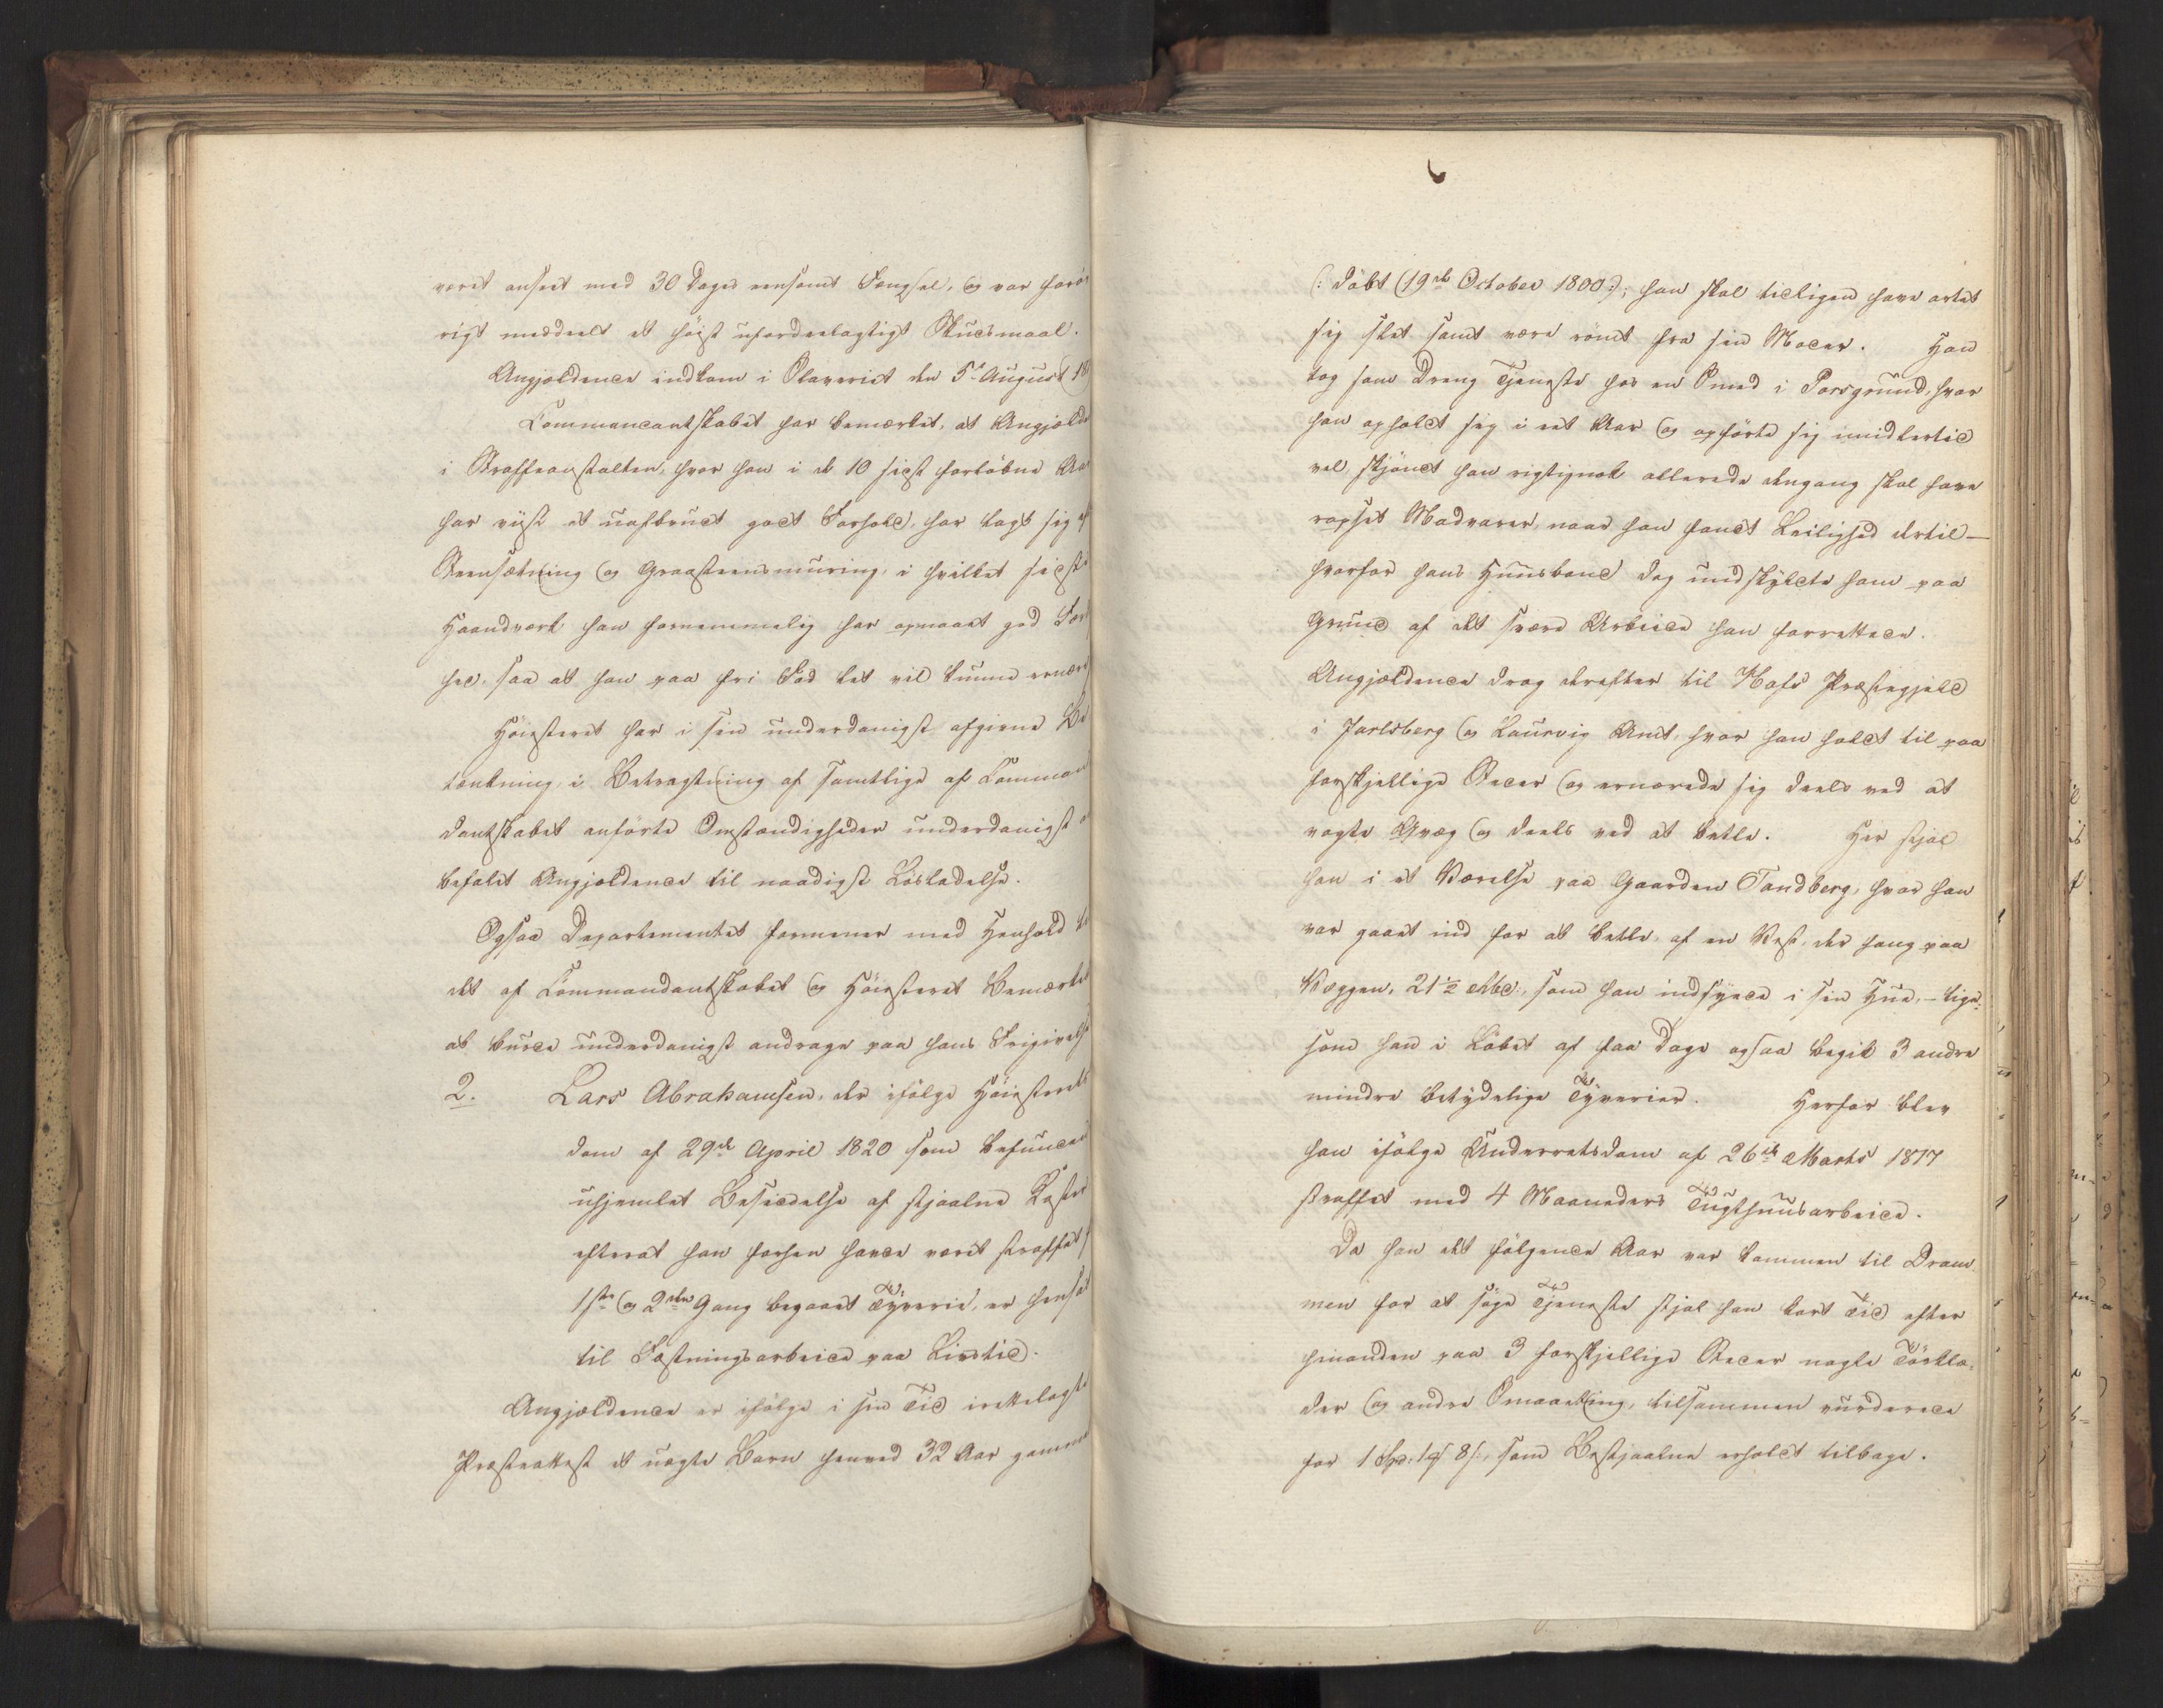 veret anseet med 30 Dages eensomt Fængsel, og var forø
rigt meddeelt et høist ufordeelagtigt Skudsmaal.
Angjældende indkom i Slaveriet den 5te August 18
Commandantskabet har bemærket, at Angjælde
i Straffeanstalten, hvor han i de 10 sidst forløbne Aar
har viist et uafbrudt godt Forhold, har lagt sig af
Steensætning og Graasteensmuring, i hvilket sidste
Haandværk han fornemmelig har opnaaet god Fær
hed, saa at han paa fri Fod let vil kunne ernære
Høiesteret har i sin underdanigst afgivne Be
tænkning, i Betragtning af samtlige af Comman
dantskabet anførte Omstændigheder underdanigst
befalet Angjældende til naadigst Løsladelse.
Ogsaa Departementet formener med Henhold til
det af Commandantskabet og Høiesteret Bemærkede
at burde underdanigst andrage paa hans Frigivelse
2. Lars Abrahamsen, der ifølge Høiesterets
dom af 29de April 1820 som befunden
uhjemlet Besiddelse af stjaalne Koster
efterat han forhen havde været straffet f
1ste og 2den Gang begaaet Tyverie, er hensat
til Fæstningsarbeide paa Livstid.
Angjældende er ifølge i sin Tid irettelagt
Præsteattest et uægte Barn henved 32 Aar gammel
(: døbt 19de October 1800:); han skal tidligen have artet
sig slet samt være rømt fra sin Moder. Han
tog som Dreng Tjeneste hos en Smed i Porsgrund, hvor
han opholdt sig i eet Aar og opførte sig imidlertid
vel, skjøndt han rigtignok allerede dengang skal have
rapset Madvarer, naar han fandt Leilighed dertil –
hvorfor hans Huusbond dog undskyldte ham paa
Grund af det svære Arbeide han forrettede.
Angjældende drog derefter til Hofs Præstegjeld
i Jarlsberg og Laurvig Amt, hvor han holdt til paa
forskjellige Steder og ernærede sig deels ved at
vogte Qvæg og deels ved at betle. Her stjal
han i et Værelse paa Gaarden Sandberg, hvor han
var gaaet ind for at betle, af en Vest, der hang paa
Væggen, 21½ Mbd:, som han indsyede i sin Hue, – lige-
som han i Løbet af faa Dage ogsaa begik 3 andre
mindre betydelige Tyverier. Herfor blev
han ifølge Underretsdom af 26de Marts 1817
straffet med 4 Maaneders Tugthuusarbeide.
Da han det følgende Aar var kommen til Dram-
men for at søge Tjeneste stjal han kort Tid efter
hinanden paa 3 forskjellige Steder nogle Tørklæ-
der og andre Smaating, tilsammen vurderede
for 1 Spd: 1 ort 8 s:, som Bestjaalne erholdt tilbage.